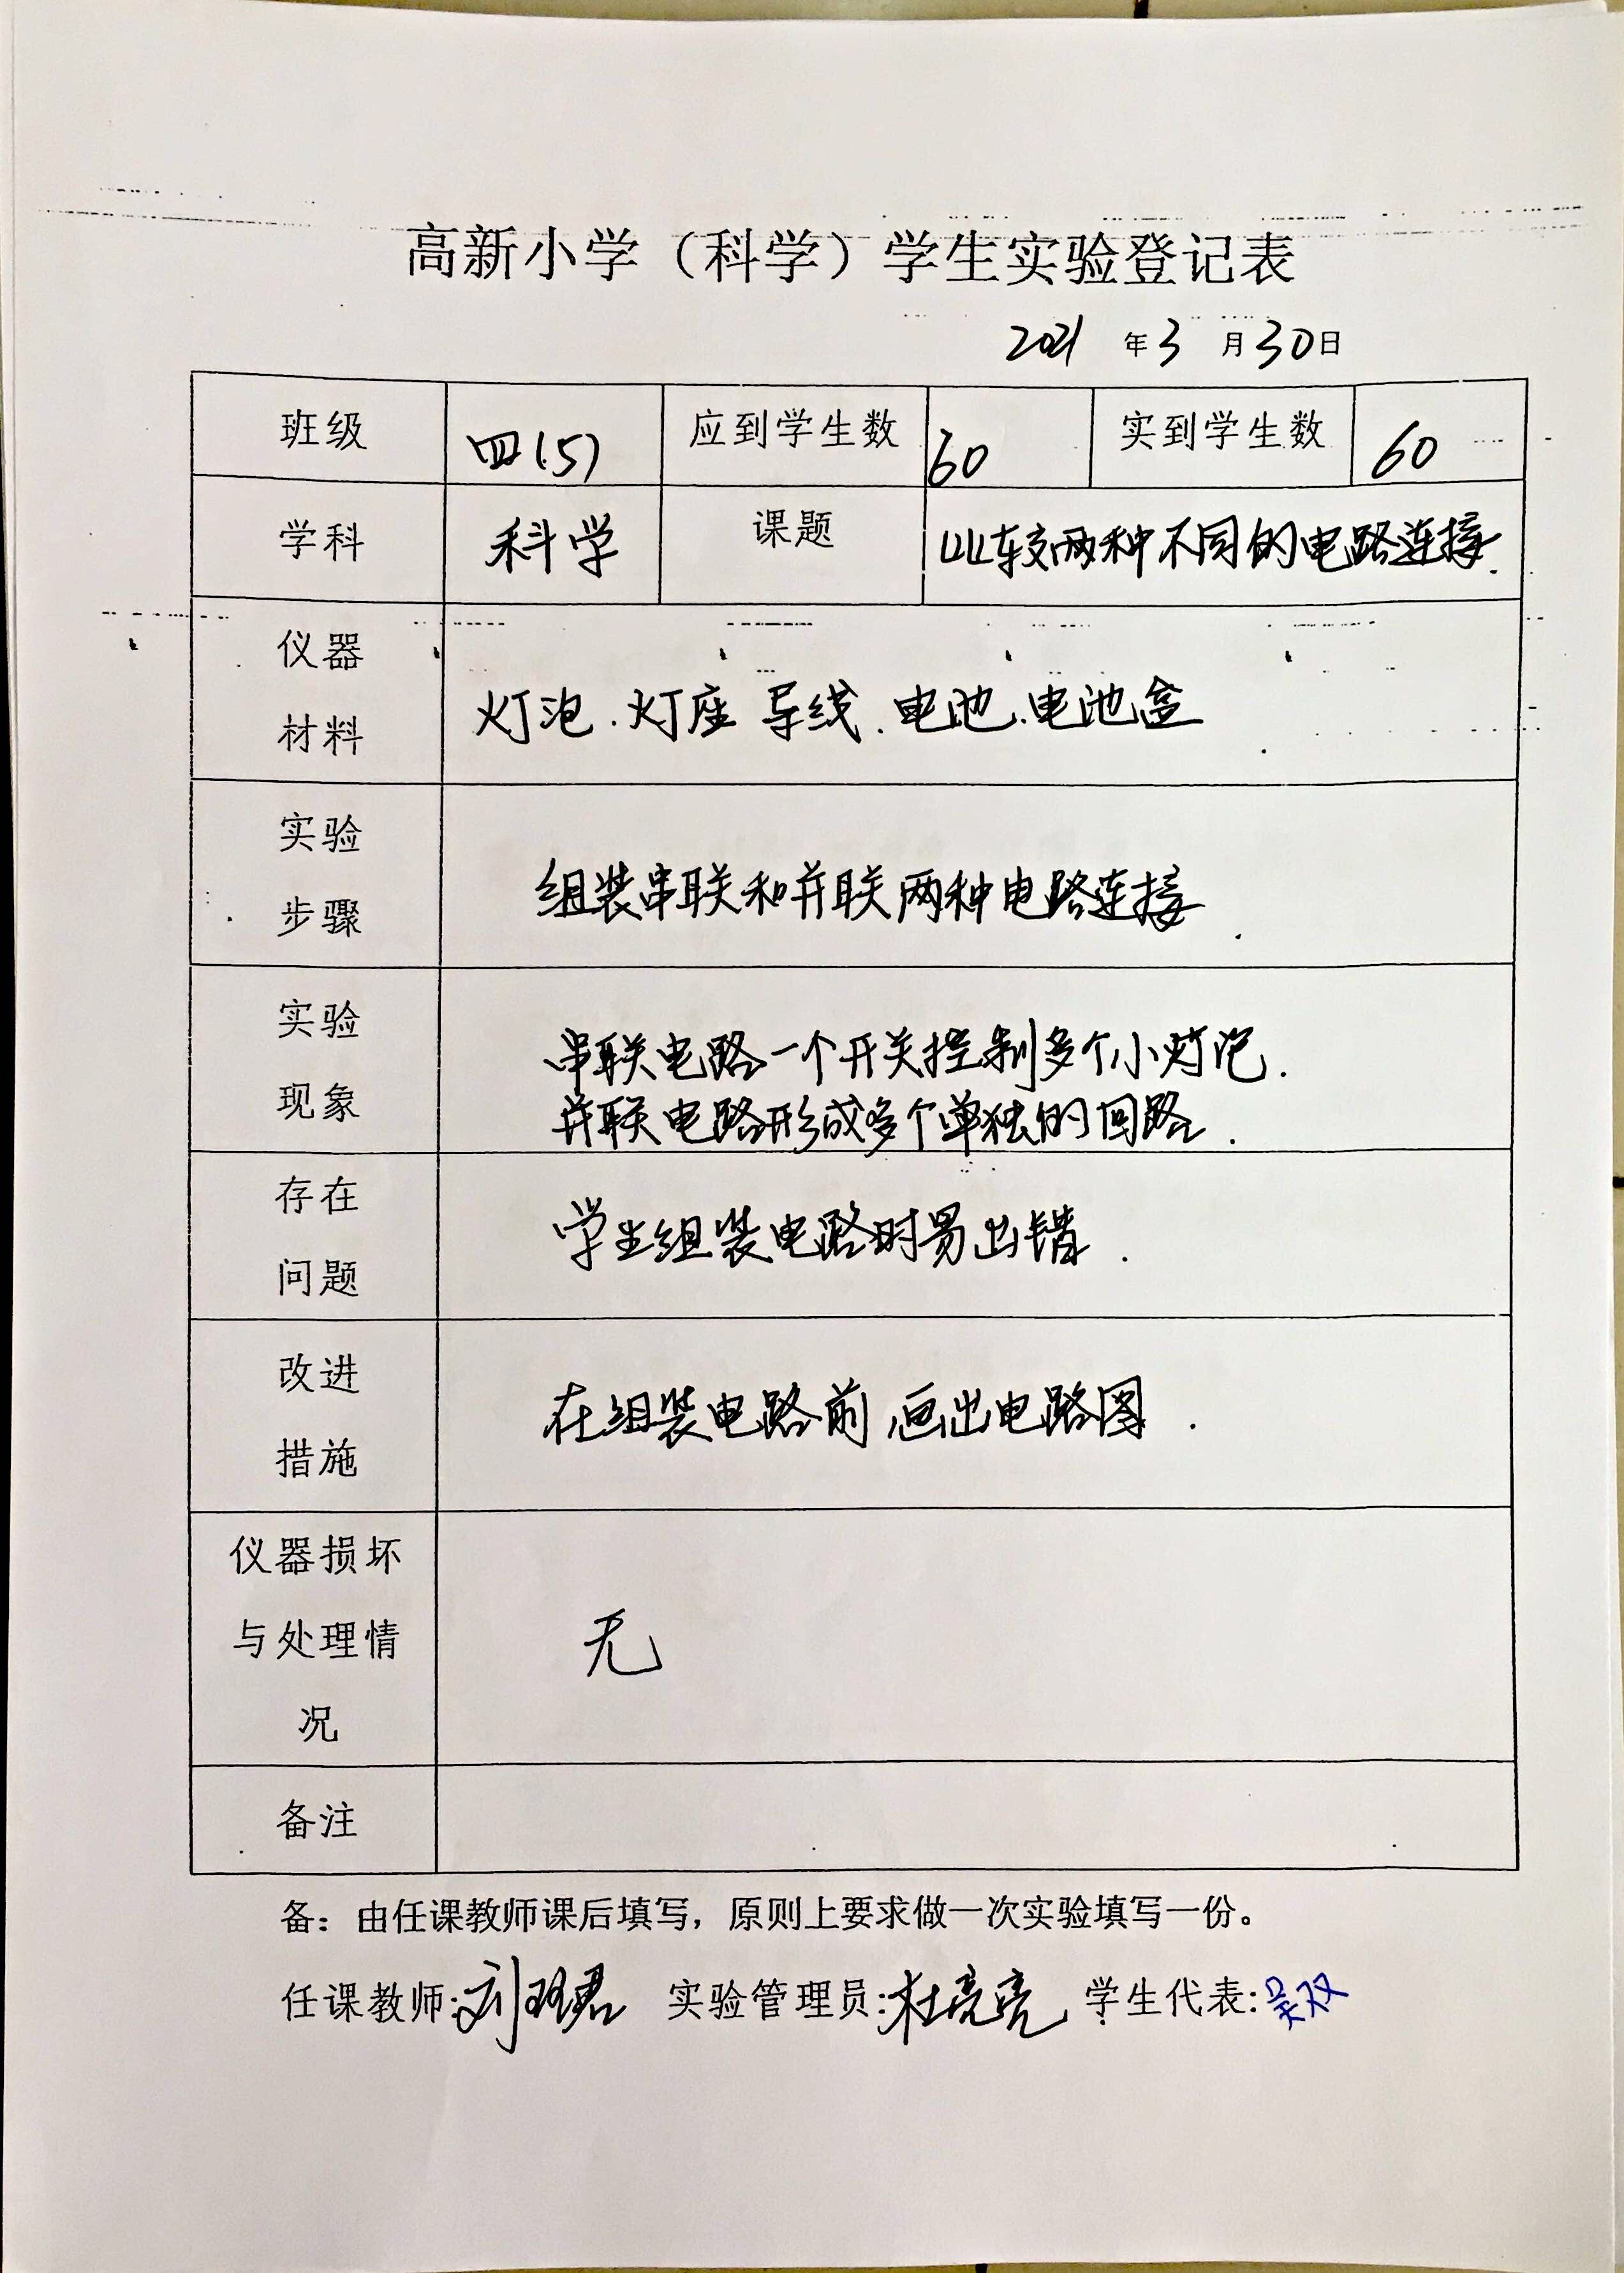 高新小学（科学）学生实验登记表
2021 年 3 月 30 日
班级 四(5) 应到学生数 60 实到学生数 60
学科 科学 课题 比较两种不同的电路连接.
仪器
材料
灯泡.灯座 导线.电池.电池盒.
实验
步骤
组装串联和并联两种电路连接.
实验
现象
串联电路一个开关控制多个小灯泡.
并联电路形成多个单独的回路.
存在
问题
学生组装电路时易出错.
改进
措施
在组装电路前画出电路图.
仪器损坏
与处理情
况
无
备注
备：由任课教师课后填写，原则上要求做一次实验填写一份。
任课教师:刘 君 实验管理员:杜亮亮 学生代表:吴双